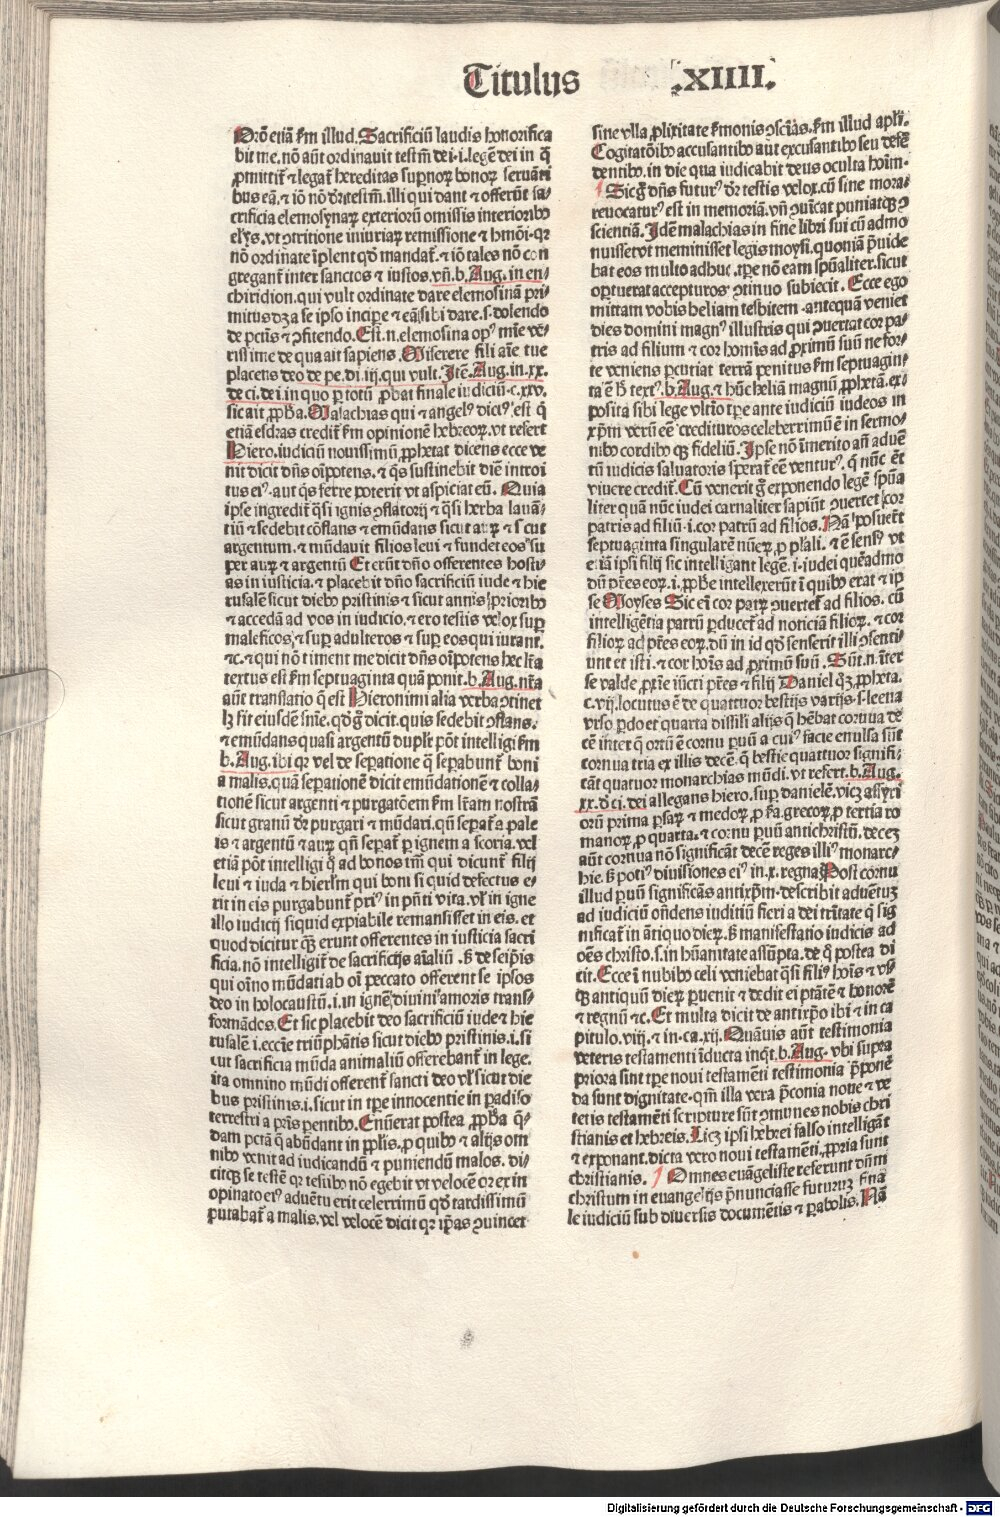 Titulus .XIIII.
Orō etiā ẜm illud. Sacrificiū laudis honorifica
bit me. nō aūt ordinavit testm̄ dei .i. legē dei in q̄
ꝓmittit̄ ⁊ legat̄ hereditas supnoꝝ bonoꝝ servāti
bus eā. ⁊ iō nō
illi qui dant ⁊ offerūt sa⸗
crificia elemosynaꝝ exterioꝝ omissis interioribꝰ
vt ꝯtritione iniuriaꝝ remissione ⁊ hmōi. qꝛ
nō ordinate īplent qd̄ mandat̄. ⁊ iō tales nō con
gregant̄ inter sanctos ⁊ iustos. vn̄. b. Aug. in en⸗
chiridion. qui vult ordinate dare elemosinā pri⸗
mitus dꝫ a se ipso incipe ⁊ eā sibi dare. s. dolendo
de pctīs ⁊ ꝯfitendo. Est. n. elemosina opꝰ mīe ve⸗
rissime de qua ait sapiens. Miserere fili aīe tue
placens deo de pe. di. iij. qui vult. Itē. Aug. in. xx.
de ci. dei in quo p totū ꝓbat finale iudiciū. c. xxv.
sic ait ꝓpha. Malachias qui ⁊ angelꝰ dictꝰ est q̄
etiā esdras credit̄ ẜm opinionē hebreoꝝ. vt refert
Hiero. iudiciū nouissimū ꝓphetat dicens ecce ve
nit dicit dn̄s oīpotens. ⁊ q̄s sustinebit diē introi
tus eiꝰ. aut q̄s ferre poterit vt aspiciat eū. Quia
ipse ingredit̄ q̄si ignis ꝯflatorij ⁊ q̄si herba lauā⸗
tiū ⁊ sedebit cōflans ⁊ emūdans sicut auꝝ ⁊ sicut
argentum. ⁊ mūdavit filios leui ⁊ fundet eos su
per auꝝ ⁊ argentū Et erūt dn̄o offerentes hosti⸗
as in iusticia. ⁊ placebit dn̄o sacrificiū iude ⁊ hie
rusalē sicut diebꝰ pristinis ⁊ sicut annis prioribꝰ
⁊ accedā ad vos in iudicio. ⁊ ero testis velox sup
maleficos ⁊ sup adulteros ⁊ sup eos qui iurant.
⁊c. ⁊ qui nō timent me dicit dn̄s oīpotens hec lr̄a
textus est ẜm septuaginta quā ponit. b. Aug. nr̄a
aūt translatio q̄ est Hieronimi alia verba ꝯtinet
lꝫ sit eiusdē sn̄ie. qd̄ g̊ dicit. quis sedebit ꝯflans.
⁊ emūdans quasi argentū duplr̄ pōt intelligi ẜm
b. Aug. ibi qꝛ vel de sepatione q̄ sepabunt̄ boni
a malis. quā sepationē dicit emūdationē ⁊ colla⸗
tionē sicut argenti ⁊ purgatōem ẜm lr̄am nostrā
sicut granū dr̄ purgari ⁊ mūdari. qn̄ sepat̄ a pale
is ⁊ argentū ⁊ auꝝ qn̄ sepat̄ p ignem a scoria. vel
etiā pōt intelligi q̄ ad bonos tm̄ qui dicunt̄ filij
leui ⁊ iuda ⁊ hierlm̄ qui boni si quid defectus e⸗
rit in eis purgabunt̄ priꝰ in pn̄ti vita. vl̄ in igne
illo iudicij siquid expiabile remansisset in eis. et
quod dicitur qꝫ erunt offerentes in iusticia sacri
ficia. nō intelligit̄ de sacrificijs aīaliū. ẜ de seipīs
qui oīno mūdati ab oī peccato offerent se ipsos
deo in holocaustū. i. in ignē diuini amoris trans⸗
formādos. Et sic placebit deo sacrificiū iude ⁊ hie
rusalē .i. eccīe triūphātis sicut diebꝰ pristinis. i. si
cut sacrificia mūda animaliū offerebant̄ in lege.
ita omnino mūdi offerent̄ sancti deo vl̄ sicut die
bus pristinis. i. sicut in tpe innocentie in padiso
terrestri a prīs pentibꝰ. Enūerat postea ꝓpha q̄⸗
dam pctā q̄ abūdant in pplīs. ꝓ quibꝰ ⁊ alijs om
nibꝰ venit ad iudicandū ⁊ puniendū malos. di⸗
citqꝫ se testē qꝛ testibꝰ nō egebit vt velocē qꝛ ex in
opinato eiꝰ aduētu erit celerrimū qd̄ tardissimū
putabat̄ a malis. vel velocē dicit qꝛ ip̄as ꝯuincet
sine vlla ꝓlixitate ẜmonis ꝯsciās. ẜm illud apli.
Cogitatōibꝰ accusantibꝰ aut excusantibꝰ seu defē
dentibꝰ. in die qua iudicabit deus oculta hoīm.
¶ Sic g̊ dn̄s futurꝰ dr̄ testis velox. cū sine mora⸗
revocaturꝰ est in memoriā. vn̄ ꝯuīcat puniatqꝫ ꝯ
scientiā. Idē malachias in fine libri sui cū admo
nuisset vt meminisset legis moysi. quoniā p̄uide
bat eos multo adhuc. tpe nō eam spūaliter. sicut
optuerat accepturos ꝯtinuo subiecit. Ecce ego
mittam vobis heliam tesbitem. antequā veniet
dies domini magnꝰ illustris qui ꝯuertat cor pa⸗
tris ad filium ⁊ cor homīs ad ꝓximū suū ne for⸗
te veniens pcutiat terrā penitus ẜm septuagin⸗
ta ē h̄ textꝰ. b. Aug. ⁊ hūc heliā magnū ꝓphetā. ex⸗
posita sibi lege vltīo tpe ante iudiciū iudeos in
xp̄m verū eē credituros celeberrimū ē in sermo⸗
nibꝰ cordibꝰ qꝫ fideliū. Ipse nō īmerito an̄ aduē
tū iudicis saluatoris sperat̄ eē venturꝰ. q̄ nūc ēt
viuere credit̄. Cū venerit g̊ exponendo legē spūa
liter quā nūc iudei carnaliter sapiūt ꝯuertet cor
patris ad filiū .i. cor patrū ad filios. Nā posuerūt
septuaginta singularē nūeꝝ ꝓ plali. ⁊ ē sensꝰ vt
etiā ipsi filij sic intelligant legē. i. iudei queādmo
dū pr̄es eoꝝ. i. ꝓphe intellexerūt ī quibꝰ erat ⁊ ip
se Moyses Sic eī cor patꝝ ꝯuertet̄ ad filios. cū
intelligētia patrū pducet̄ ad noticiā filioꝝ. ⁊ cor
filioꝝ ad pr̄es eoꝝ. dū in id qd̄ senserit illi ꝯsenti⸗
unt et isti. ⁊ cor hoīs ad ꝓximū suū. Sūt. n. īter
se valde ꝓxīe iūcti pr̄es ⁊ filij Daniel qꝫ ꝓpheta.
c. vij. locutus ē de quattuor bestijs varijs. s. leena
vrso pdo et quarta dissili alijs q̄ hēbat cornua de
cē inter q̄ ortū ē cornu puū a cuiꝰ facie emulsa sūt
cornua tria ex illis decē. q̄ bestie quattuor signifi⸗
cāt quatuor monarchias mūdi. vt refert. b. Aug.
xx. d̄ ci. dei allegans hiero. sup danielē. vicꝫ assyri
orū prima psaꝝ ⁊ medoꝝ. ꝓ ẜa. grecoꝝ. ꝓ tertia ro
manoꝝ. ꝓ quarta. ⁊ cornu puū antichristū. decez
aūt cornua nō significāt decē reges illiꝰ monarc⸗
hie. ẜ potiꝰ diuisiones eiꝰ in. x. regna. Post cornu
illud puū significās antixp̄m. describit aduētuz
ad iudiciū on̄dens iuditiū fieri a dei trītate q̄ sig
nificat̄ in ātiquo dieꝝ. ẜ manifestatio iudicis ad
oēs christo. s. in hūanitate assūpta. de q̄ postea di
cit. Ecce ī nubibꝰ celi veniebat q̄si filiꝰ hoīs ⁊ vs
qꝫ antiquū dieꝝ puenit ⁊ dedit ei ptātē ⁊ honorē
⁊ regnū ⁊c. Et multa dicit de antixp̄o ibi ⁊ in ca
pitulo. viij. ⁊ in. ca. xij. Quāuis aūt testimonia
veteris testamenti īducta inqt̄. b. Aug. vbi supra
priora sint tpe noui testamēti testimonia p̄ponē
da sunt dignitate. qm̄ illa vera p̄conia noue ⁊ ve
teris testamēti scripture sūt ꝯmunes nobis chri
stianis et hebreis. Licꝫ ipsi hebrei falso intelligāt
⁊ exponant. dicta vero noui testamēti. ꝓpria sunt
christianis. ¶ Omnes euāgeliste referunt dn̄m
christum in euangelijs p̄nunciasse futuruz fina
le iudiciū sub diuersis documētis ⁊ pabolis. Nā
Digitalisierung gefördert durch die Deutsche Forschungsgemeinschaft - DFG